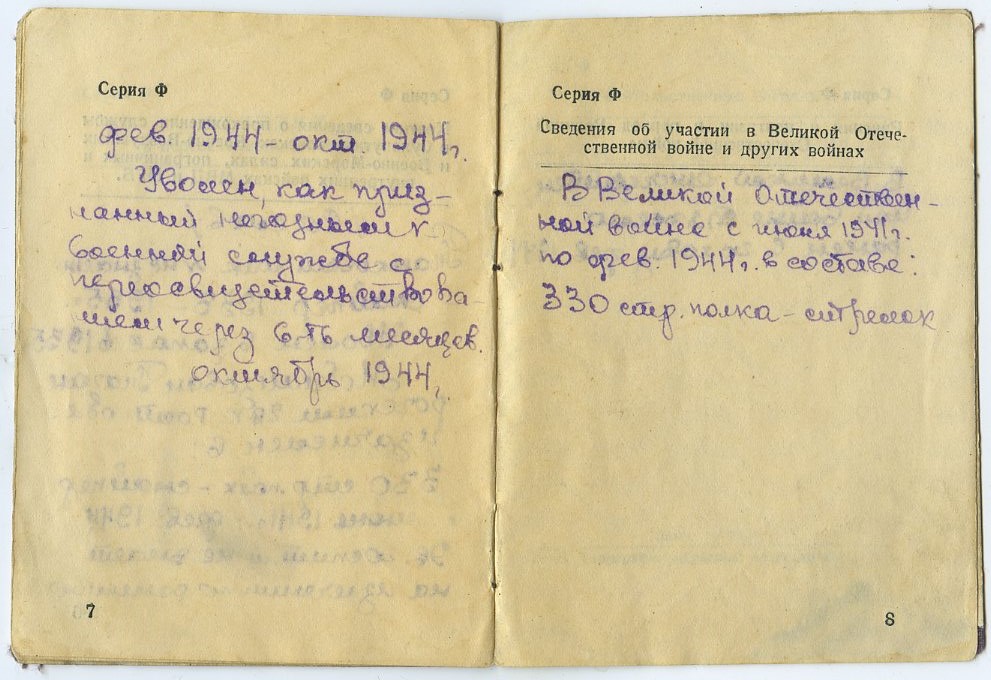 Серия Ф
фев. 1944 - окт. 1944г.
Уволен, как приз-
нанный негодным к
военной службе с
переосвидетельствова-
нием через 6ть месяцев.
октябрь 1944г.
7
Серия Ф
Сведения об участии в Великой Отече-
ственной войне и других войнах
В Великой Отечествен-
ной войне с июня 1941г.
по фев. 1944г. в составе:
330 стр. полка - стрелок
8